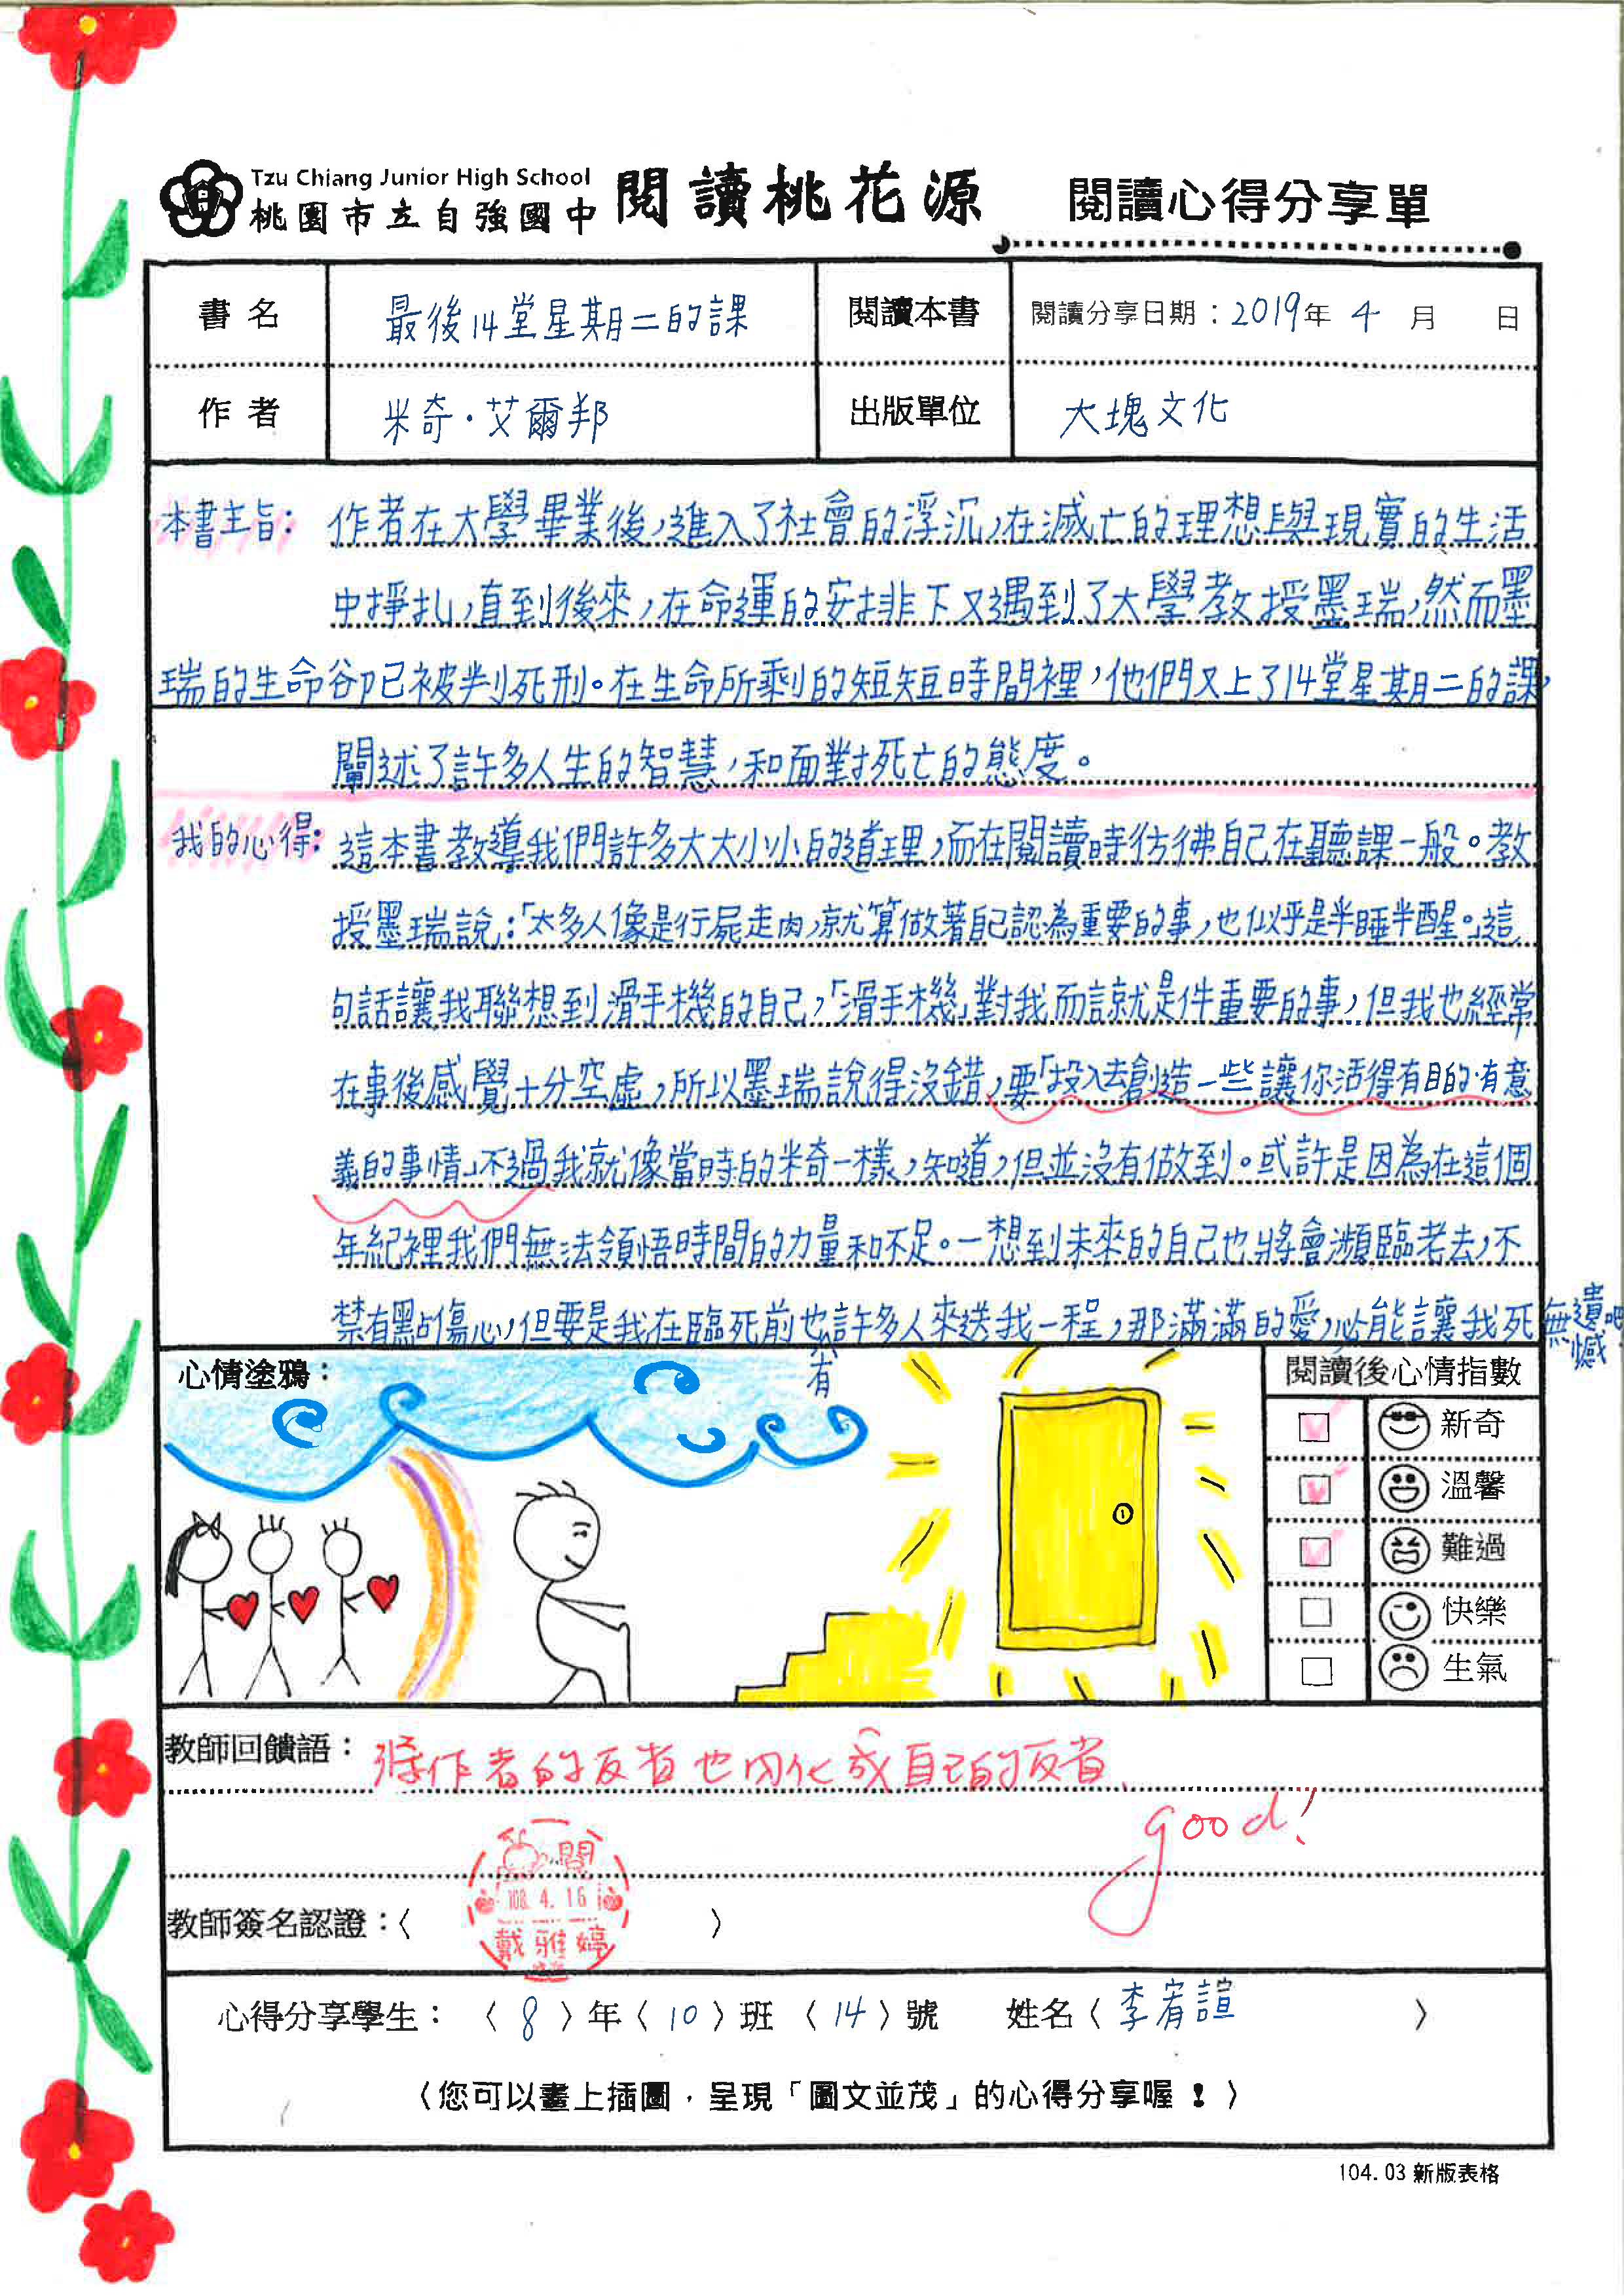 Tzu Chiang Junior High School
桃園市立自強國中 閱讀桃花源 閱讀心得分享單
書名 最後14堂星期二的課 閱讀本書 閱讀分享日期：2019年 4 月 日
作者 米奇·艾爾邦 出版單位 大塊文化
本書主旨：作者在大學畢業後，進入了社會的浮沉，在滅亡的理想與現實的生活
中掙扎，直到後來，在命運的安排下又遇到了大學教授墨瑞，然而墨
瑞的生命卻已被判死刑。在生命所剩的短短時間裡，他們又上了14堂星期二的課，
闡述了許多人生的智慧，和面對死亡的態度。
我的心得：這本書教導我們許多大大小小的道理，而在閱讀時彷彿自己在聽課一般。教
授墨瑞說：「太多人像是行屍走肉，就算做著自己認為重要的事，也似乎是半睡半醒。」這
句話讓我聯想到滑手機的自己，「滑手機」對我而言就是件重要的事，但我也經常
在事後感覺十分空虛，所以墨瑞說得沒錯，要「投入去創造一些讓你活得有目的有意
義的事情」不過我就像當時的米奇一樣，知道，但並沒有做到。或許是因為在這個
年紀裡我們無法領悟時間的力量和不足。一想到未來的自己也將會瀕臨老去，不
禁有點傷心，但要是我在臨死前也有許多人來送我一程，那滿滿的愛，必能讓我死無遺憾吧
心情塗鴉： 閱讀後心情指數
新奇
溫馨
難過
快樂
生氣
教師回饋語：將作者的反省也內化成自己的反省、
good!
教師簽名認證：〈 閱 108. 4. 16 戴雅婷 〉
心得分享學生：〈 8 〉年〈 10 〉班〈 14 〉號 姓名〈 李宥諠 〉
〈您可以畫上插圖，呈現「圖文並茂」的心得分享喔！〉
104.03 新版表格